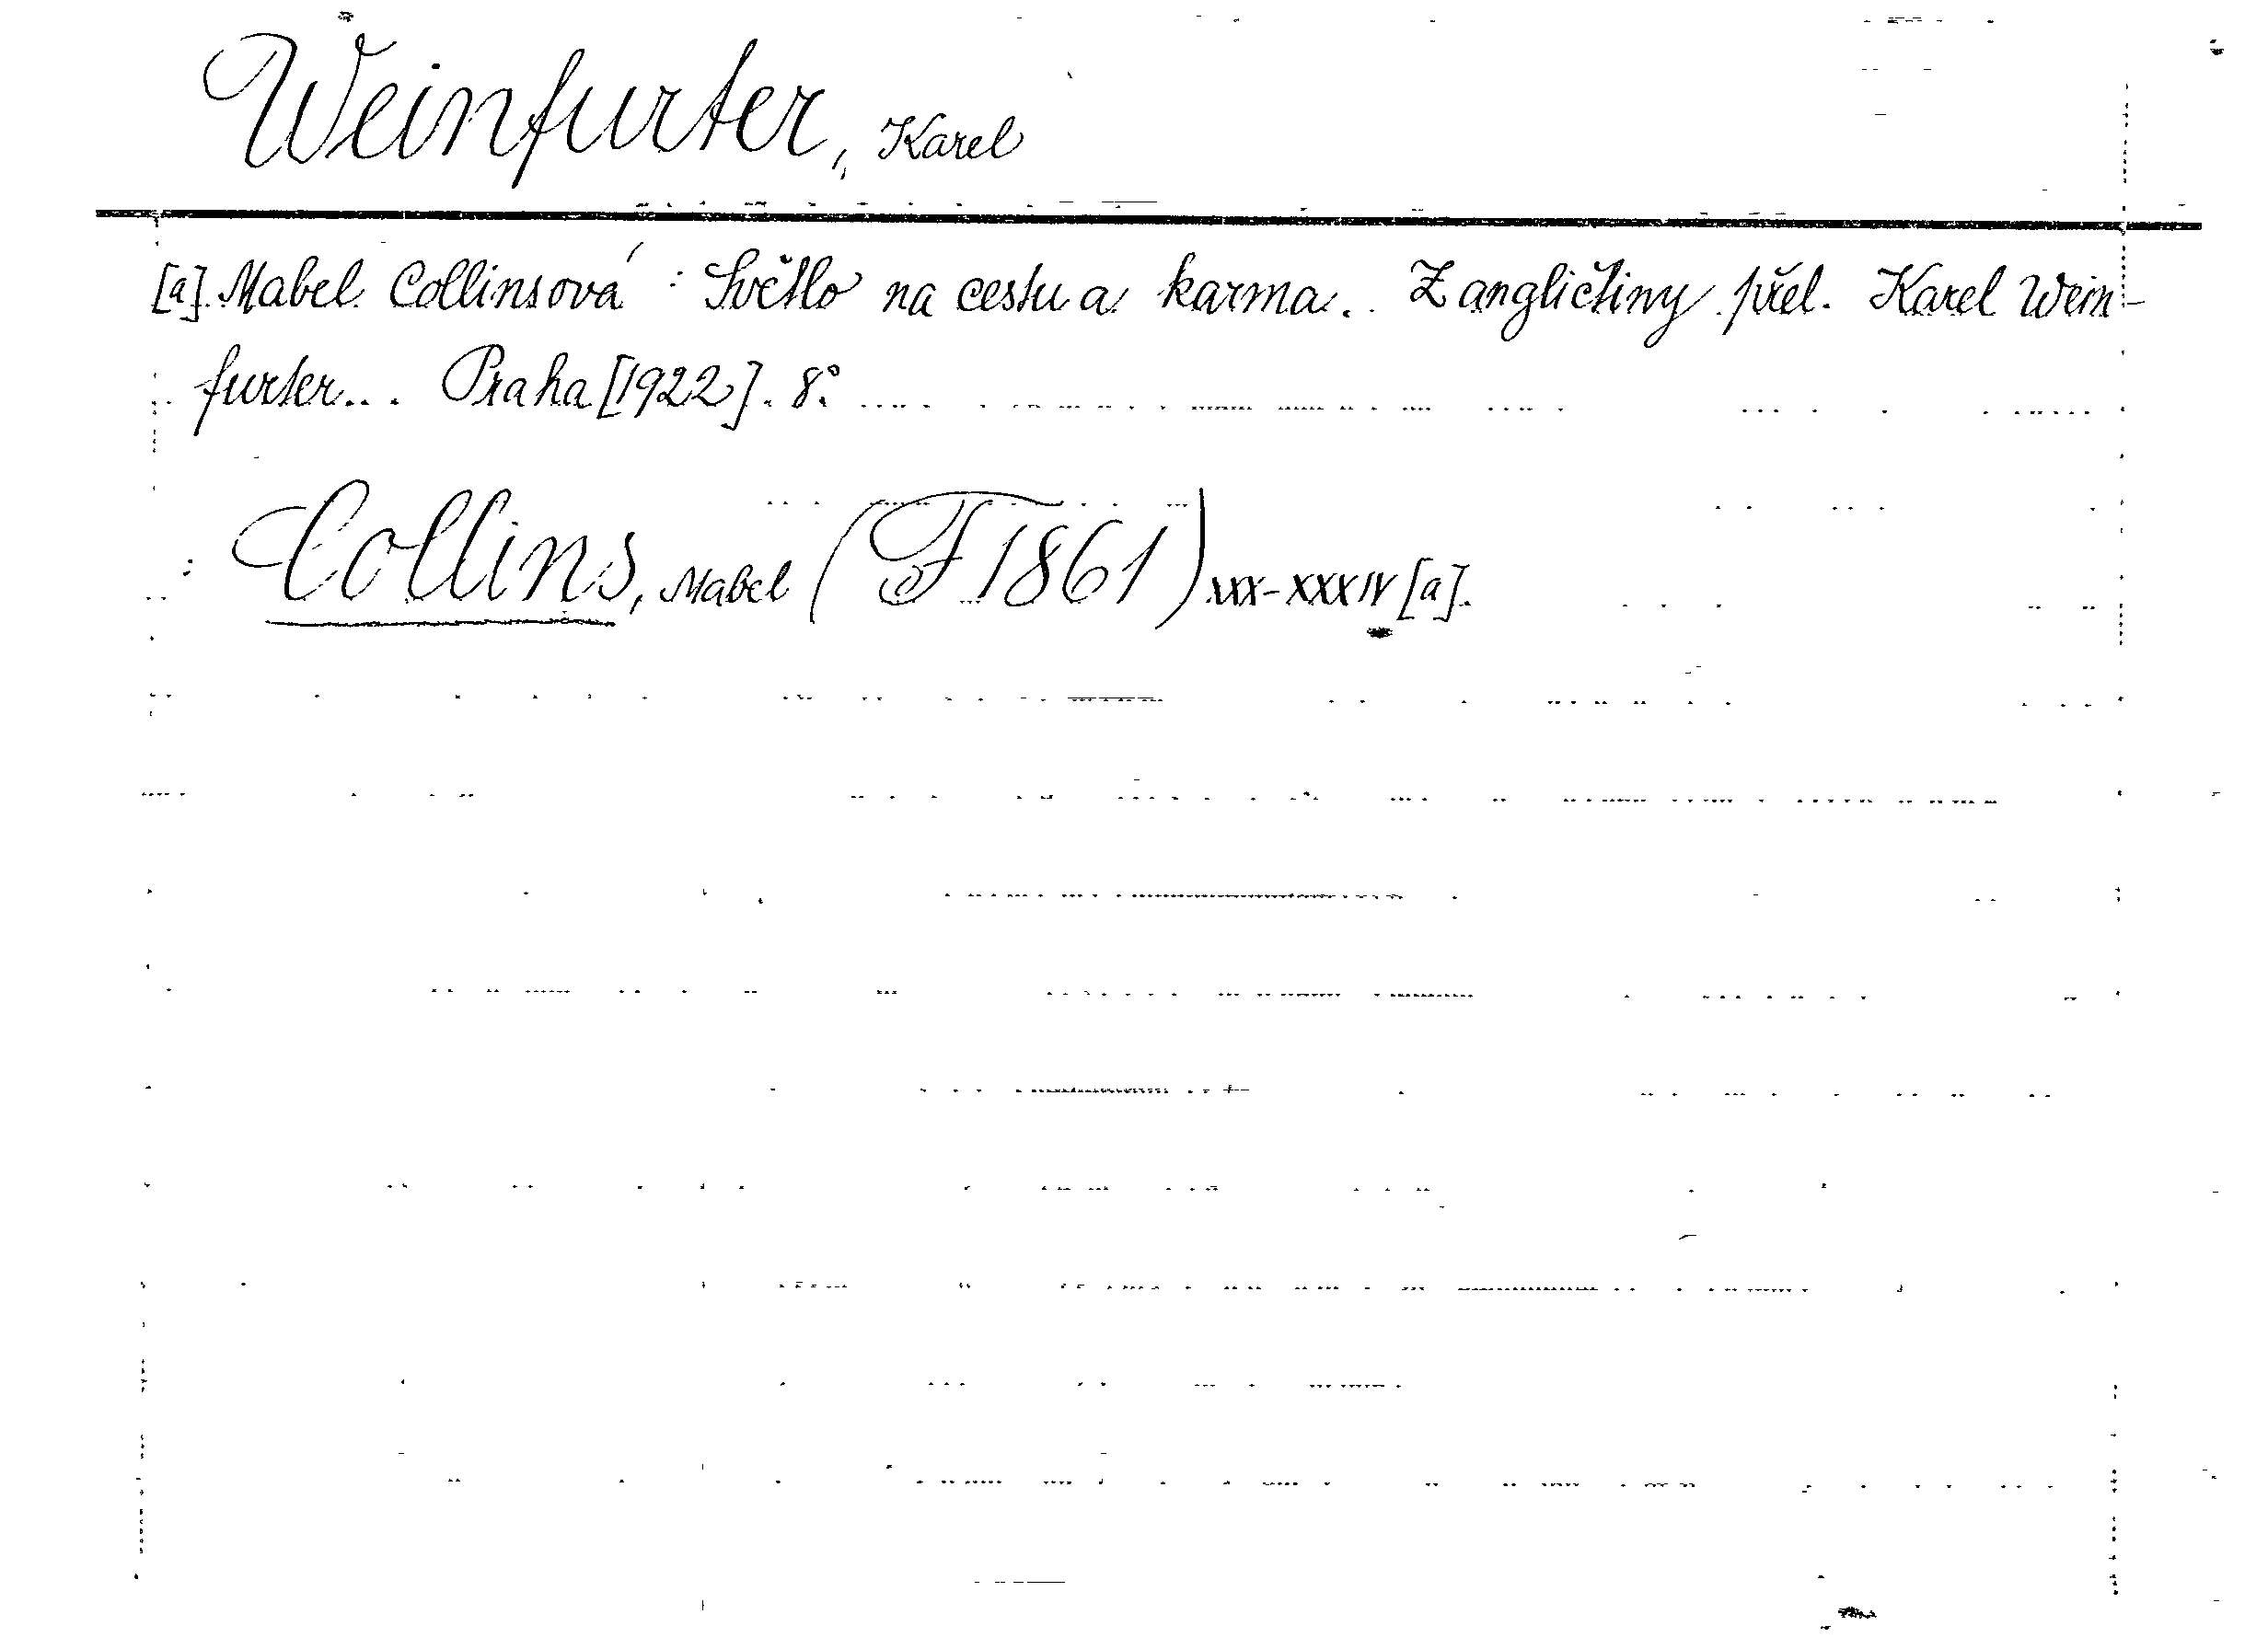 Weinfurter, Karel
[a] Mabel Collinsová : Světlo na cestu a karma. Z angličtiny přel. Karel Wein-
furter... Praha [1922]. 8°.
: Collins, Mabel (F 1861) XXX-XXXIV [a].